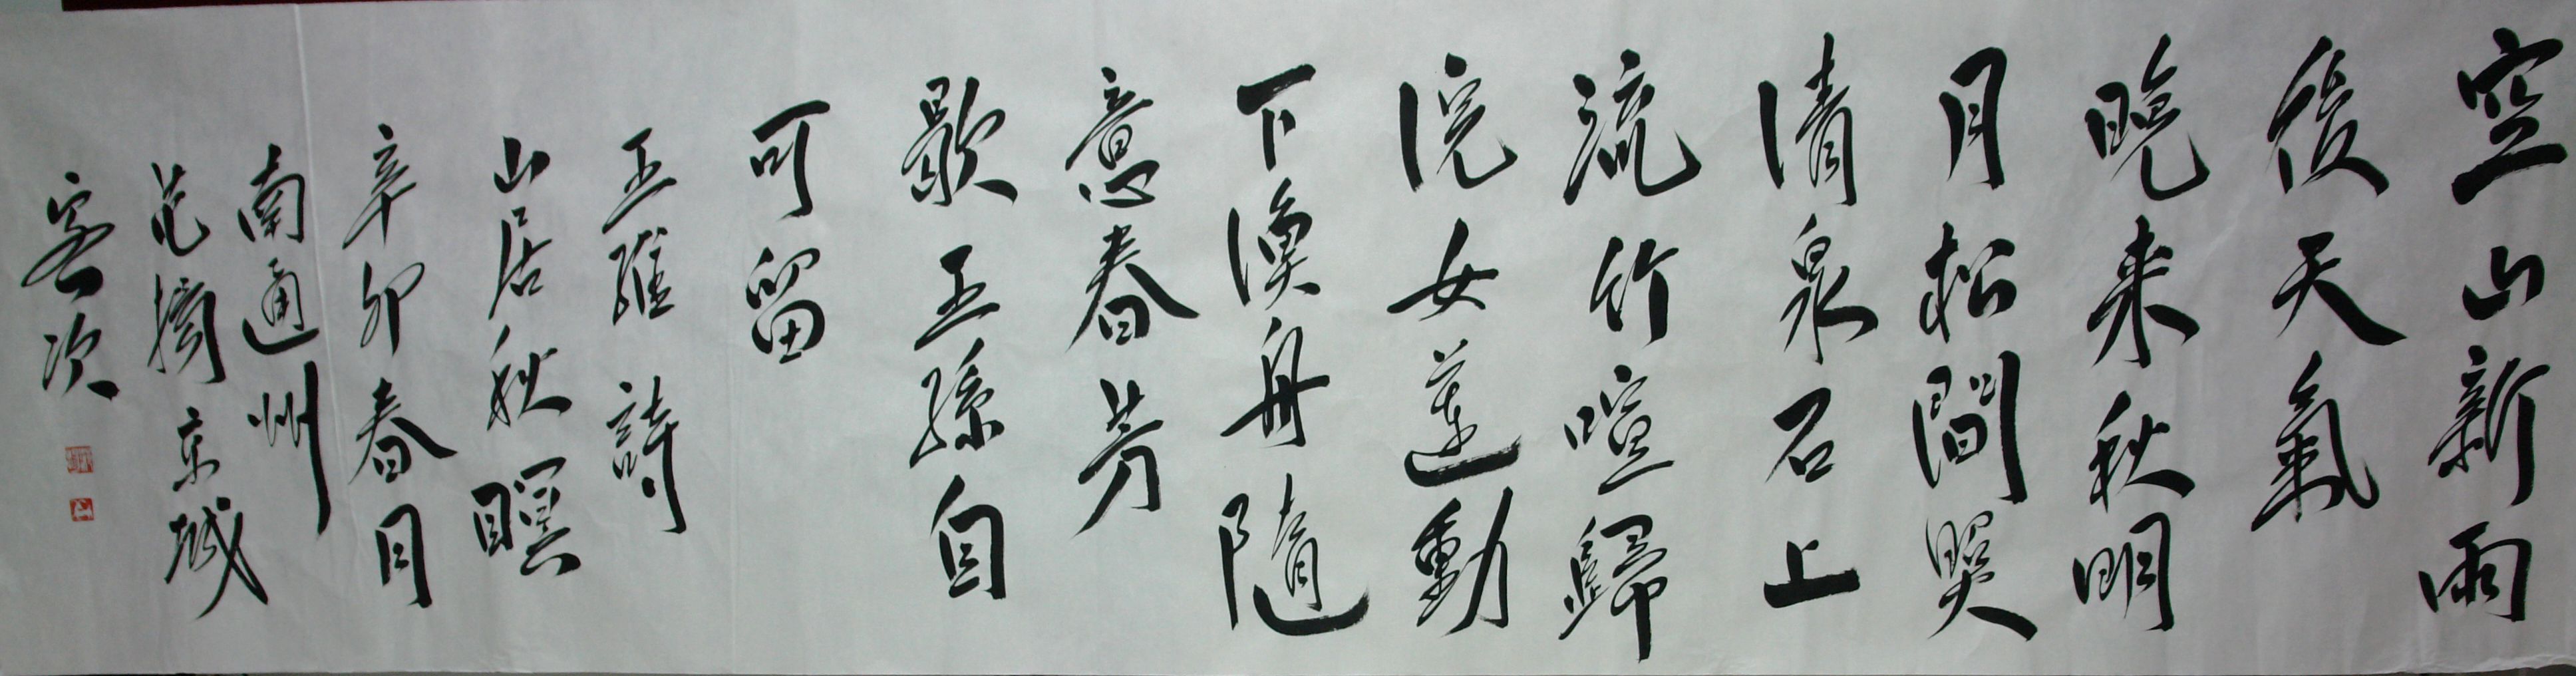 空山新雨
後天氣
晚来秋明
月松間照
清泉石上
流竹喧歸
浣女蓮動
下漁舟隨
意春芳
歇王孫自
可留
王維詩
山居秋暝
辛卯春月
南通州
范 京城
客次